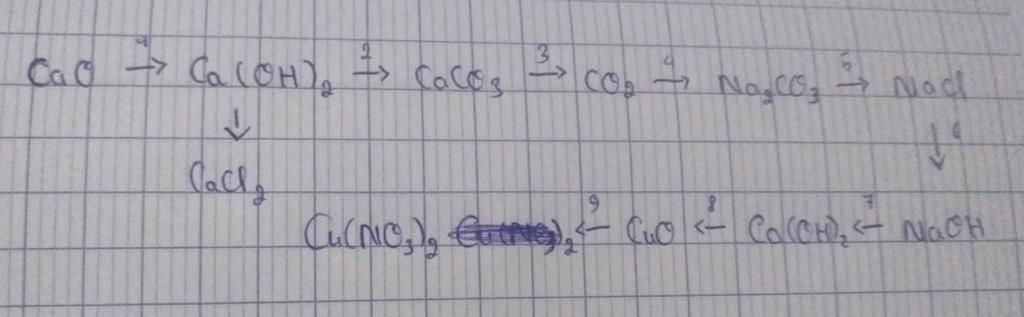 CaO →¹ Ca(OH)₂ →² CaCO₃ →³ CO₂ →⁴ Na₂CO₃ →⁵ NaCl
↓ ↓6
CaCl₂
Cu(NO₃)₂ ←⁹ CuO ←⁸ Ca(OH)₂ ←⁷ NaOH